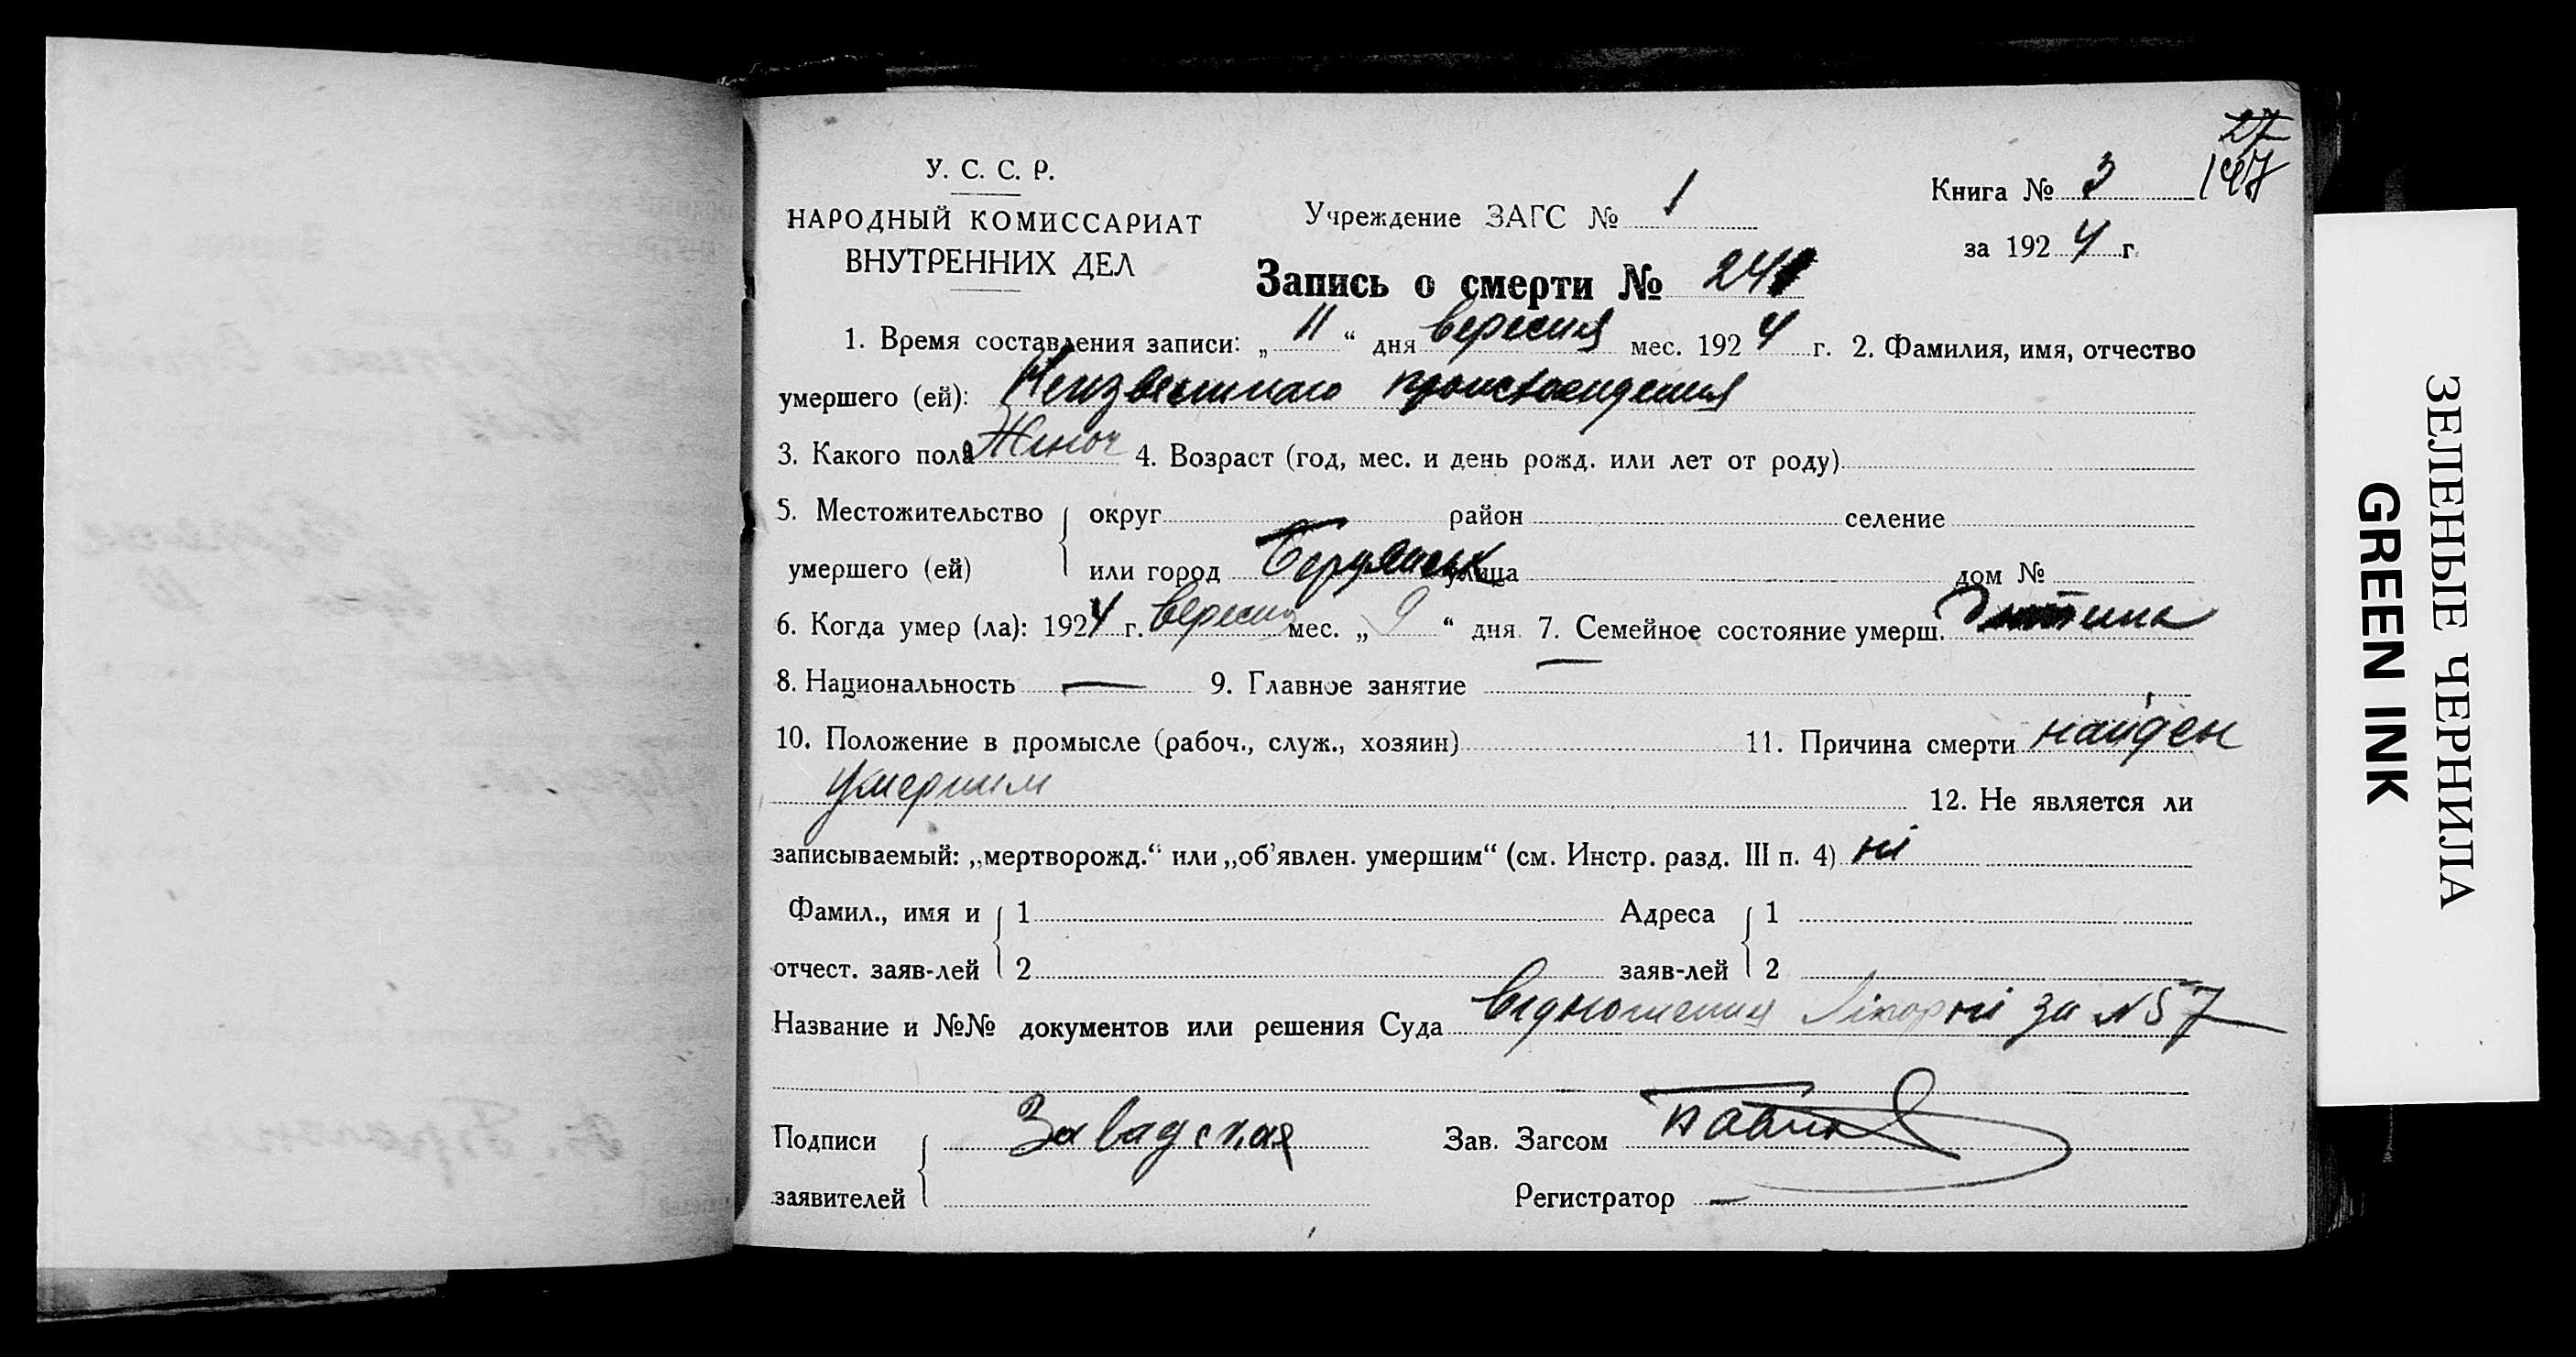 27
147
У. С. С. Р.
НАРОДНЫЙ КОМИССАРИАТ
ВНУТРЕННИХ ДЕЛ
Учреждение ЗАГС № 1
Книга № 3
за 1924 г.
Запись о смерти № 241
1. Время составления записи: „11“ дня вересня мес. 1924 г. 2. Фамилия, имя, отчество
умершего (ей): Неизвестного происхождения
3. Какого пола Жіноч 4. Возраст (год, мес. и день рожд. или лет от роду)
5. Местожительство округ район селение
умершего (ей) или город улица дом №
6. Когда умер (ла): 1924 г. вересня мес. „9“ дня 7. Семейное состояние умерш. Дитина
8. Национальность — 9. Главное занятие —
10. Положение в промысле (рабоч., служ., хозяин) 11. Причина смерти найден
умершим
12. Не является ли
записываемый: „мертворожд.“ или „об’явлен. умершим“ (см. Инстр. разд. III п. 4) ні
Фамил., имя и 1 Адреса 1
отчест. заяв-лей 2 заяв-лей 2
Название и №№ документов или решения Суда відношення Лікарні за N 57
Подписи Завадская Зав. Загсом
заявителей Регистратор —
ЗЕЛЕНЫЕ ЧЕРНИЛА
GREEN INK